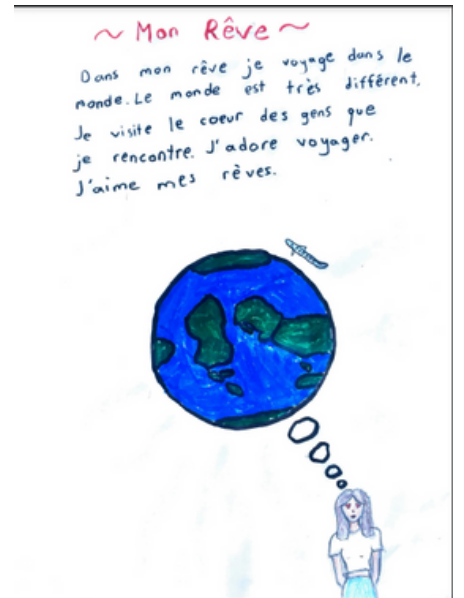 ~ Mon Rêve ~
Dans mon rêve je voyage dans le
monde. Le monde est très différent.
Je visite le coeur des gens que
je rencontre. J'adore voyager.
J'aime mes rêves.